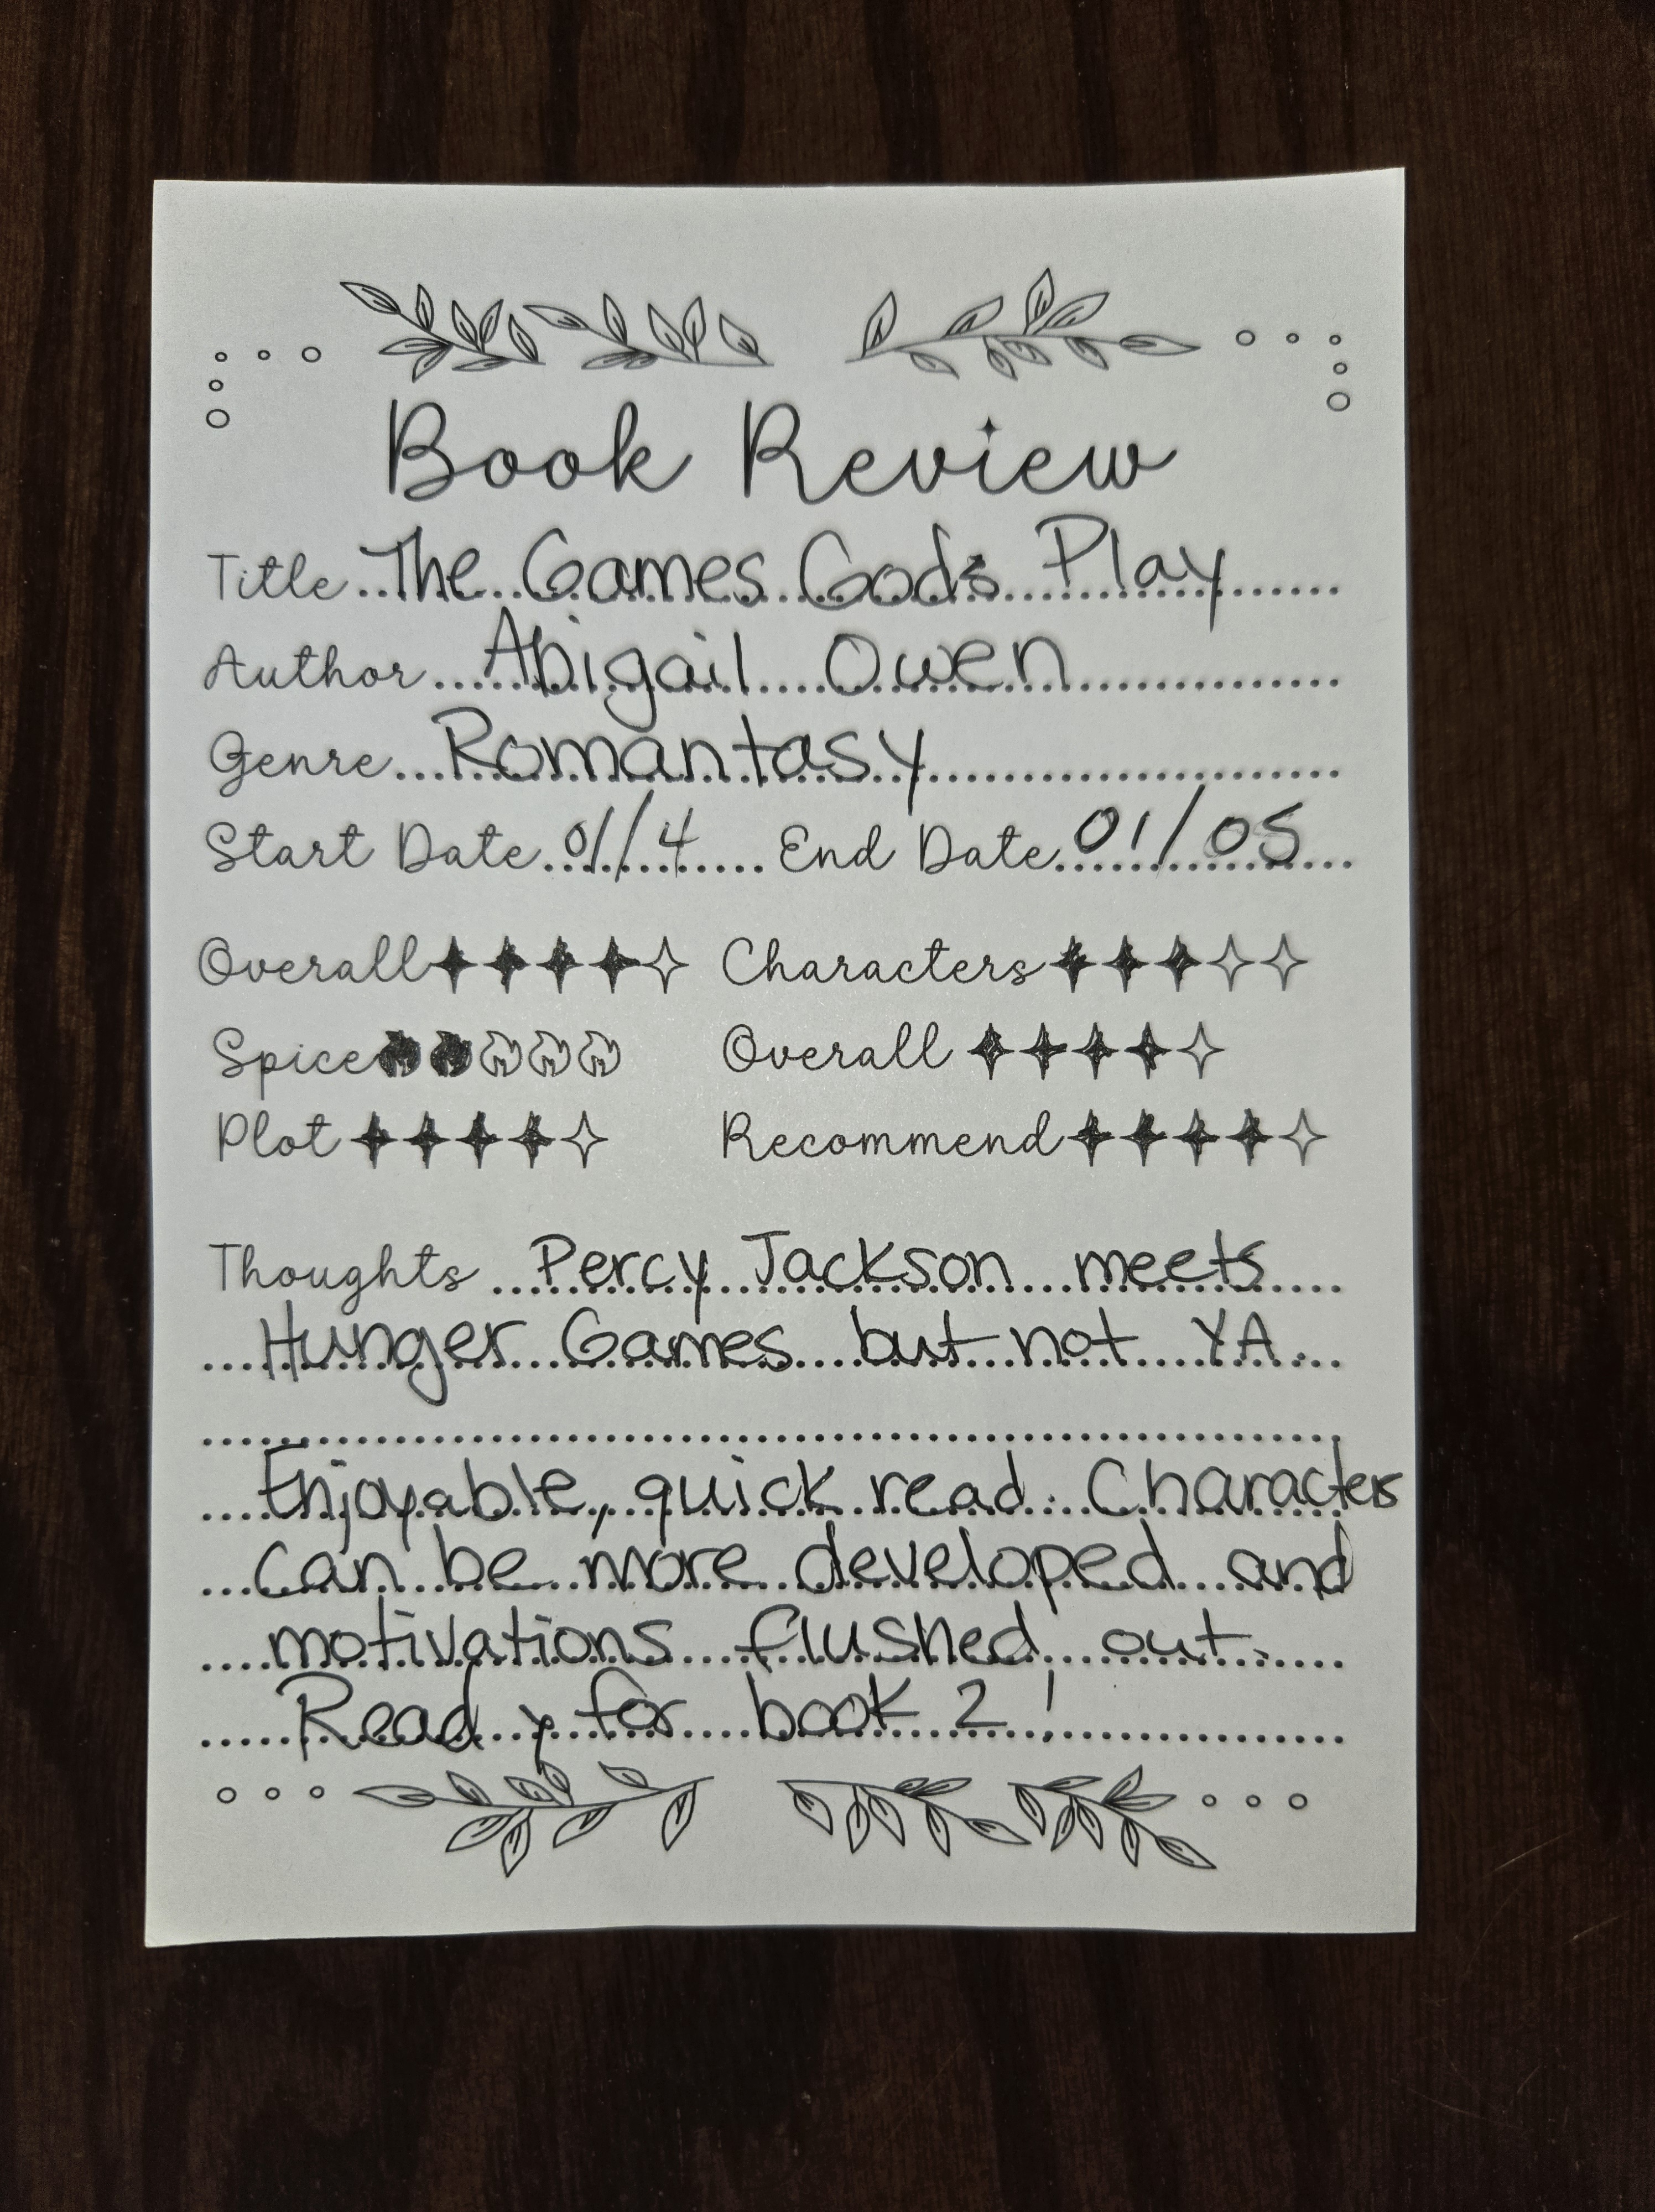 Book Review
Title The Games Gods Play
Author Abigail Owen
Genre Romantasy
Start Date 01/4 End Date 01/05
Overall Characters
Spice Overall
Plot Recommend
Thoughts Percy Jackson meets
Hunger Games but not YA
Enjoyable, quick read. Characters
can be more developed and
motivations flushed out.
Ready for book 2!